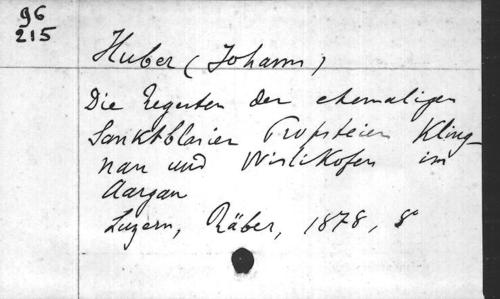 96
215
Huber (Johann)
Die Regesten der ehemaligen
Sanktblasier Propsteien Kling-
nau und Wislikofen im
Aargau
Luzern, Räber, 1878, 8°